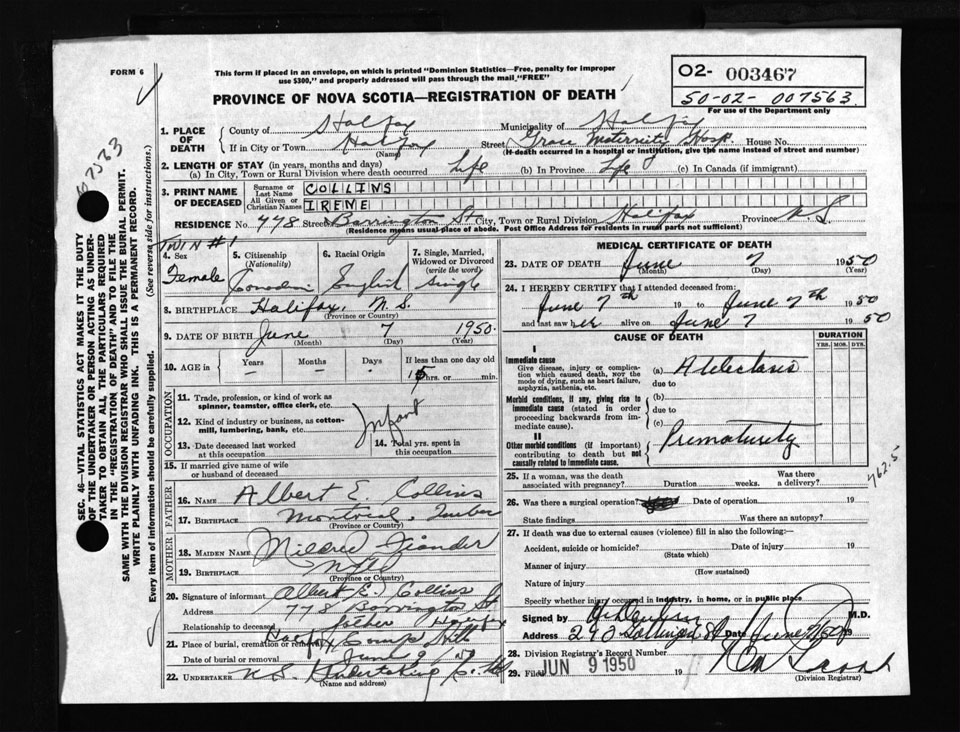 FORM 6
This form if placed in an envelope, on which is printed "Dominion Statistics—Free, penalty for improper
use $300," and properly addressed will pass through the mail "FREE"
02- 003467
50-02- 007563
For use of the Department only
PROVINCE OF NOVA SCOTIA—REGISTRATION OF DEATH
1. PLACE OF DEATH
County of Halifax Municipality of Halifax
If in City or Town Halifax (Name) Street Grace Maternity Hosp. House No.
(If death occurred in a hospital or institution, give the name instead of street and number)
2. LENGTH OF STAY (in years, months and days)
(a) In City, Town or Rural Division where death occurred Life (b) In Province Life (c) In Canada (if immigrant)
3. PRINT NAME OF DECEASED
Surname or Last Name COLLINS
All Given or Christian Names IRENE
RESIDENCE No. 778 Street Barrington St City, Town or Rural Division Halifax Province N.S.
(Residence means usual place of abode. Post Office Address for residents in rural parts not sufficient)
TWIN #1
4. Sex Female
5. Citizenship (Nationality) Canadian
6. Racial Origin English
7. Single, Married, Widowed or Divorced (write the word) Single
8. BIRTHPLACE Halifax, N.S.
(Province or Country)
9. DATE OF BIRTH June 7 1950.
(Month) (Day) (Year)
10. AGE in Years – Months – Days – If less than one day old
15 hrs. or min.
OCCUPATION
11. Trade, profession, or kind of work as
spinner, teamster, office clerk, etc.
Infant
12. Kind of industry or business, as cotton-
mill, lumbering, bank, etc.
13. Date deceased last worked
at this occupation
14. Total yrs. spent in
this occupation
15. If married give name of wife
or husband of deceased
FATHER
16. NAME Albert E. Collins
17. BIRTHPLACE Montreal, Quebec
(Province or Country)
MOTHER
18. MAIDEN NAME Mildred Fiander
19. BIRTHPLACE Nfld
(Province or Country)
20. Signature of informant Albert E. Collins
Address 778 Barrington St
Relationship to deceased father Halifax
21. Place of burial, cremation or removal Halifax
Date of burial or removal June 9 50
22. UNDERTAKER N.S. Undertaking Co.
(Name and address)
MEDICAL CERTIFICATE OF DEATH
23. DATE OF DEATH June 7 1950
(Month) (Day) (Year)
24. I HEREBY CERTIFY that I attended deceased from:
June 7th 19 to June 7th 1950
and last saw her alive on June 7 1950
CAUSE OF DEATH
DURATION
YRS. MOS. DYS.
I
Immediate cause
Give disease, injury or complica-
tion which caused death, NOT the
mode of dying, such as heart failure,
asphyxia, asthenia, etc.
(a) Atelectasis
due to
Morbid conditions, if any, giving rise to
immediate cause (stated in order
proceeding backwards from im-
mediate cause).
(b)
due to
(c)
II
Other morbid conditions (if important)
contributing to death but not
causally related to immediate cause.
Prematurity
762.5
25. If a woman, was the death
associated with pregnancy? Duration weeks. Was there
a delivery?
26. Was there a surgical operation? Date of operation 19
State findings Was there an autopsy?
27. If death was due to external causes (violence) fill in also the following:—
Accident, suicide or homicide? Date of injury 19
(State which)
Manner of injury
(How sustained)
Nature of injury
Specify whether injury occurred in industry, in home, or in public place
Signed by M.D.
Address 290 Gottingen St Date June 9/50 19
28. Division Registrar's Record Number
29. Filed JUN 9 1950 19
(Division Registrar)
SEC. 46—VITAL STATISTICS ACT MAKES IT THE DUTY
OF THE UNDERTAKER OR PERSON ACTING AS UNDER-
TAKER TO OBTAIN ALL THE PARTICULARS REQUIRED
IN THE "REGISTRATION OF DEATH" AND TO FILE THE
SAME WITH THE DIVISION REGISTRAR WHO SHALL ISSUE THE BURIAL PERMIT.
WRITE PLAINLY WITH UNFADING INK. THIS IS A PERMANENT RECORD.
Every item of information should be carefully supplied. (See reverse side for instructions.)